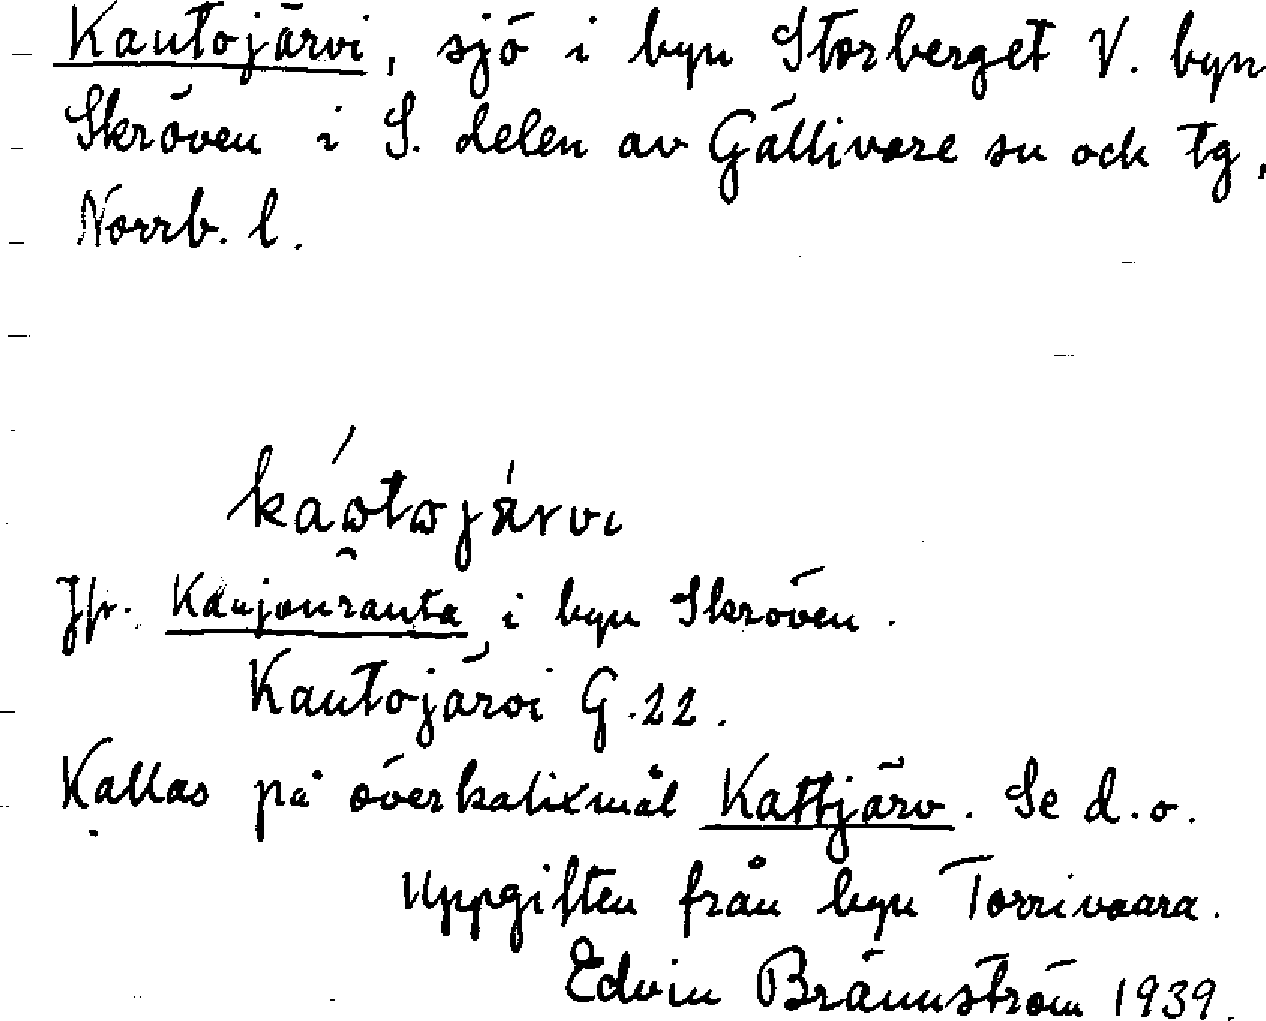 Kautojärvi, sjö i byn Storberget V. byn
Skröven i S. delen av Gällivare sn ock tg,
Norrb. l.
káɷtɷjä́rvι
Jfr. Kaujonranta i byn Skröven.
Kautojärvi G.22.
Kallas på överkalixmål Kattjärv. Se d.o.
Uppgiften från byn Torrivaara.
Edvin Brännström 1939.